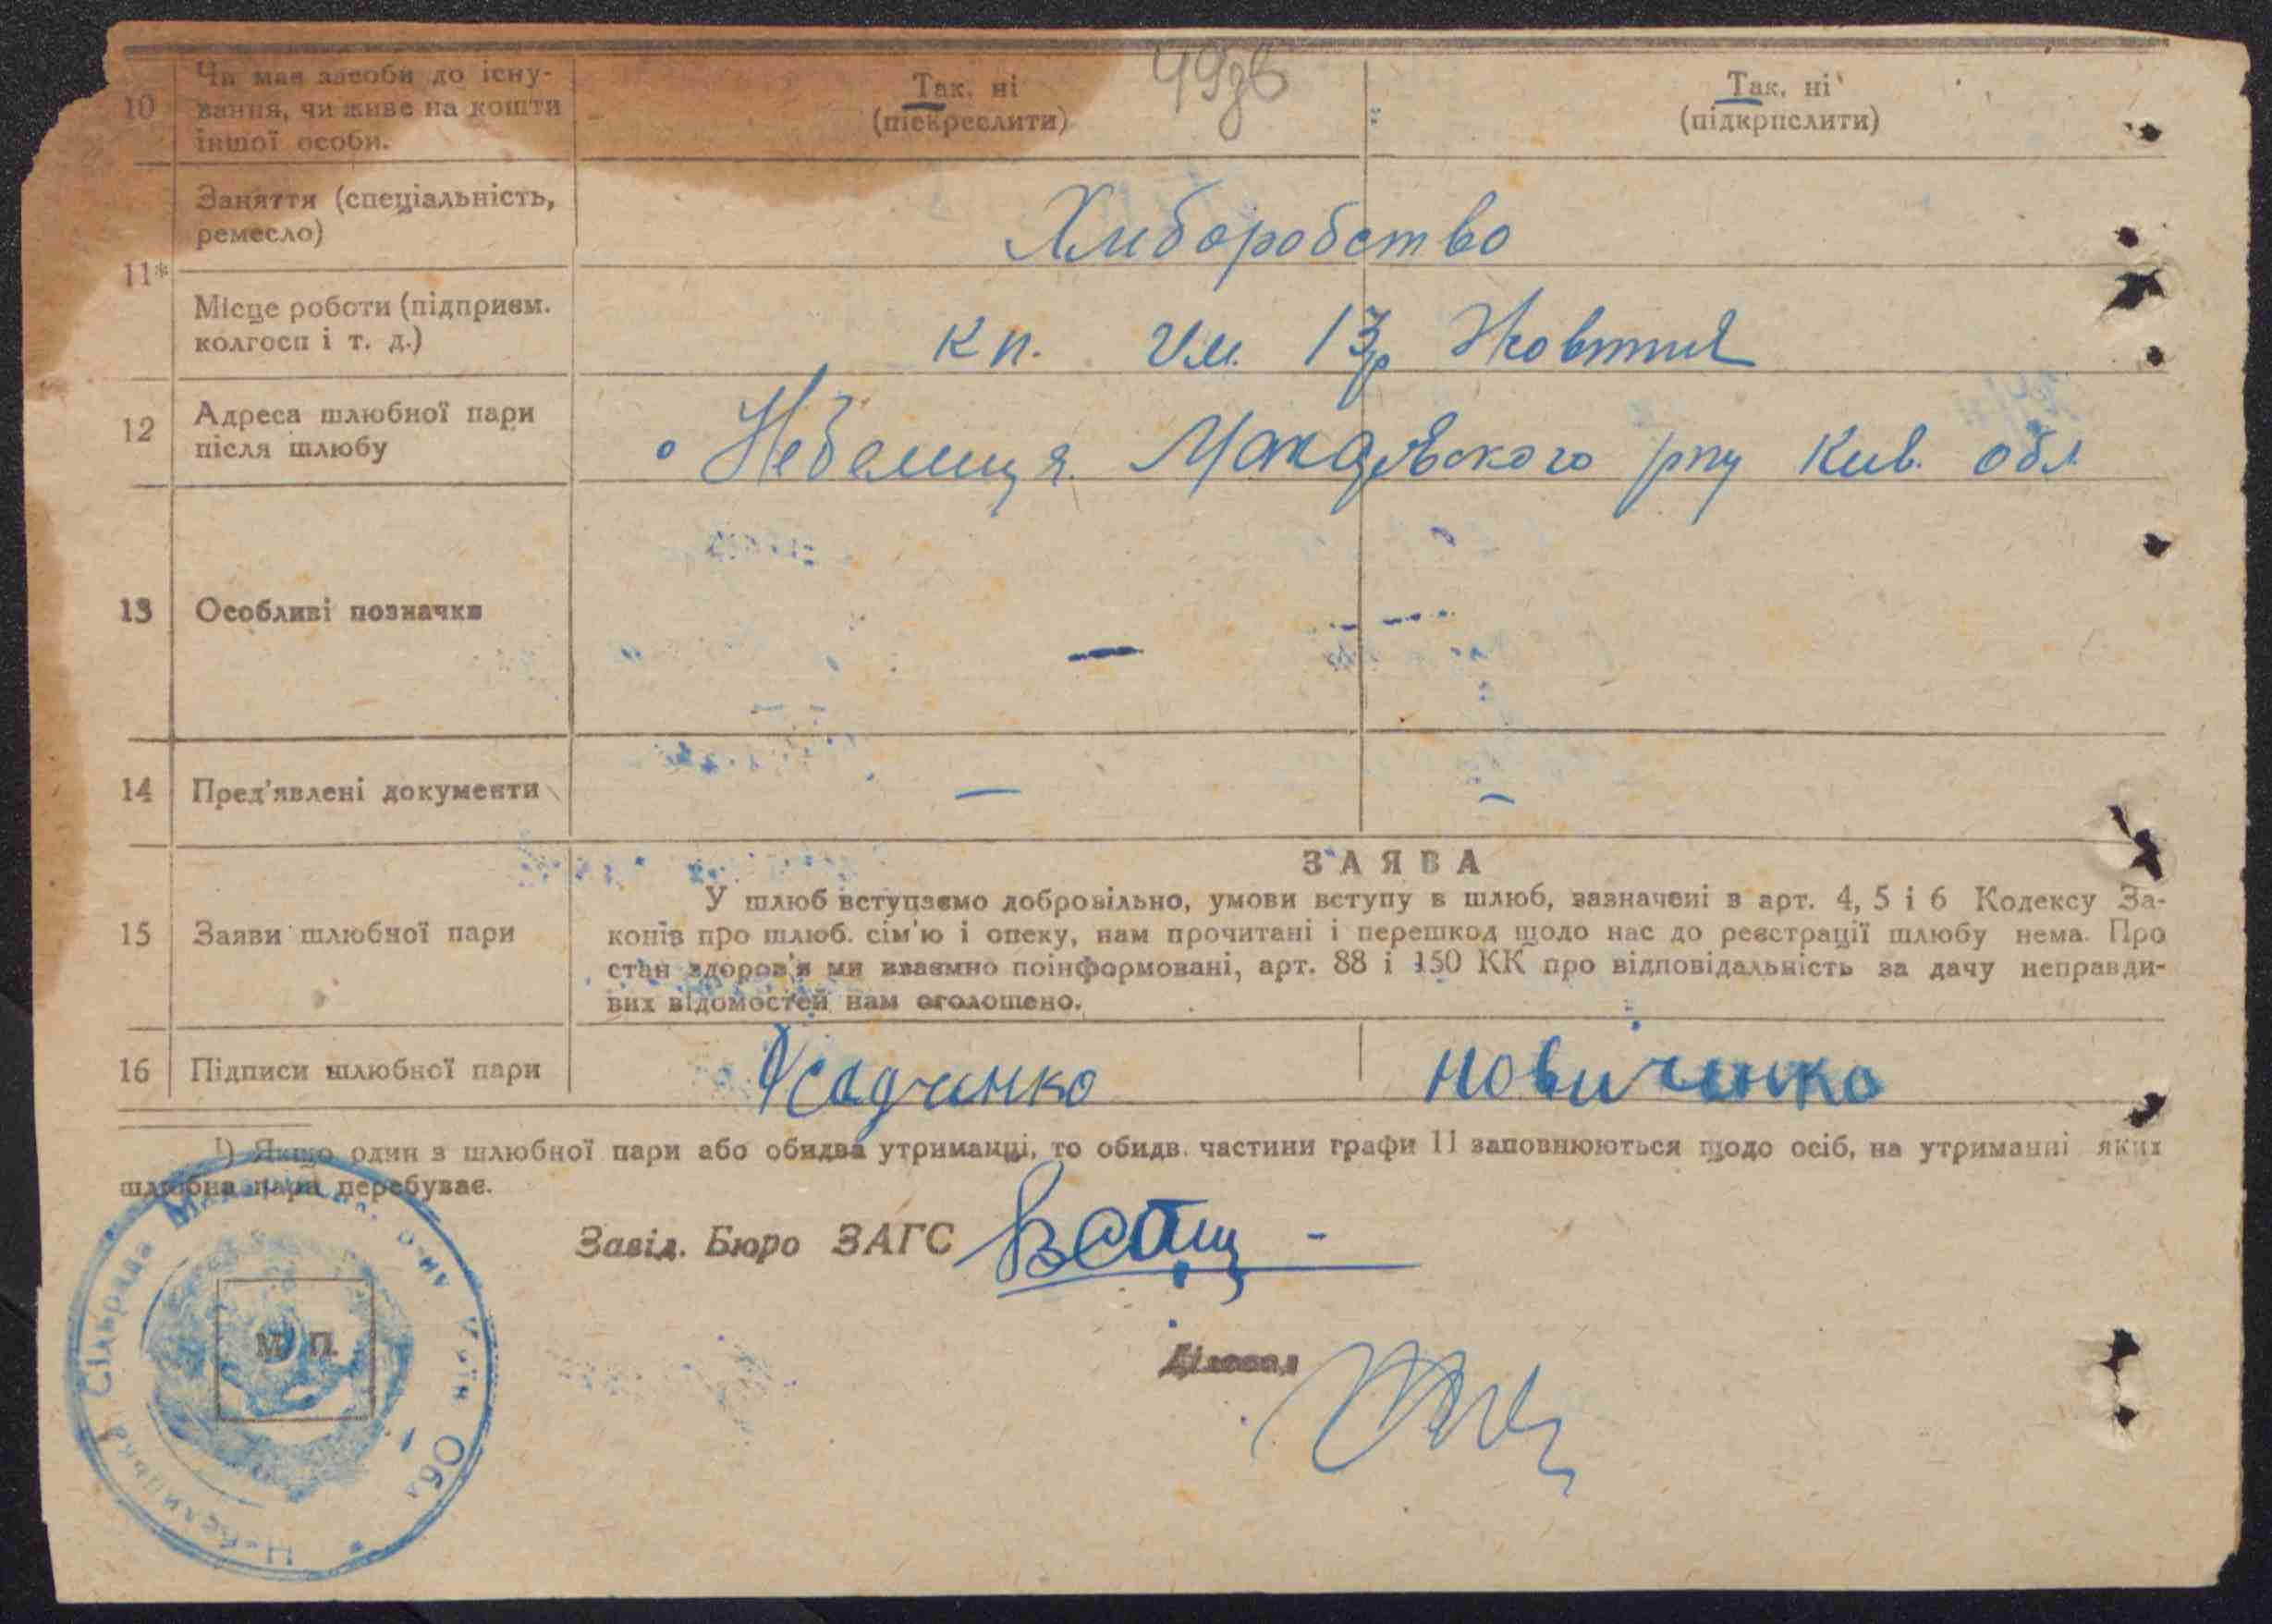 49зв
10 Чи має засоби до існу-
вання, чи живе на кошти
іншої особи.
Так, ні
(піскреслити)
Так, ні
(підкрпслити)
11* Заняття (спеціальність,
ремесло)
Хліборобство
Місце роботи (підприєм.
колгосп і т. д.)
кп. Ім. 13р Жовтня
12 Адреса шлюбної пари
після шлюбу
Небелиця Макарівского рну Киів. обл
13 Особливі позначки
—
14 Пред'явлені документи
— –
15 Заяви шлюбної пари
ЗАЯВА
У шлюб вступаємо добровільно, умови вступу в шлюб, зазначені в арт. 4, 5 і 6 Кодексу За-
конів про шлюб. сім'ю і опеку, нам прочитані і перешкод щодо нас до реєстрації шлюбу нема. Про
стан здоров'я ми взаємно поінформовані, арт. 88 і 150 КК про відповідальність за дачу неправди-
вих відомостей нам оголошено.
16 Підписи шлюбної пари
Новиченко
1) Якщо один з шлюбної пари або обидва утриманці, то обидв. частини графи 11 заповнюються щодо осіб, на утриманні яких
шлюбна пара перебуває.
Завід. Бюро ЗАГС
М. П.
Діловод
Небелицька Сільрада
Обл